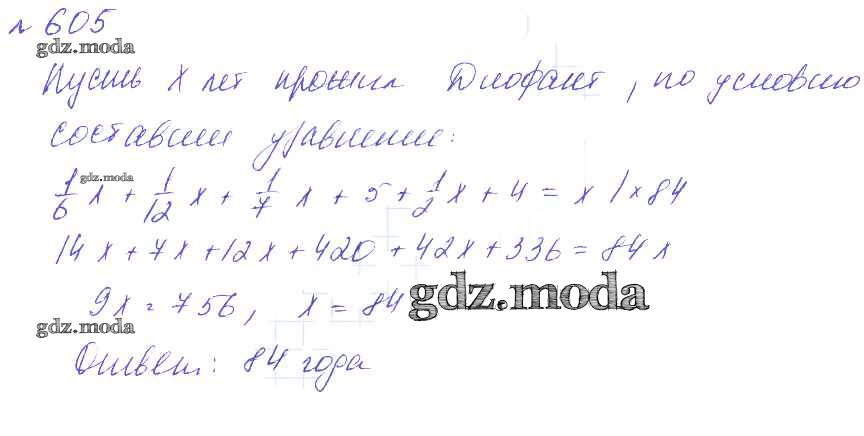 № 605
gdz.moda
Пусть x лет прожил Диофант, по условию
составим уравнение:
gdz.moda
1/6 x + 1/12 x + 1/7 x + 5 + 1/2 x + 4 = x | × 84
14x + 7x + 12x + 420 + 42x + 336 = 84x
9x = 756, x = 84
gdz.moda
gdz.moda
Ответ: 84 года